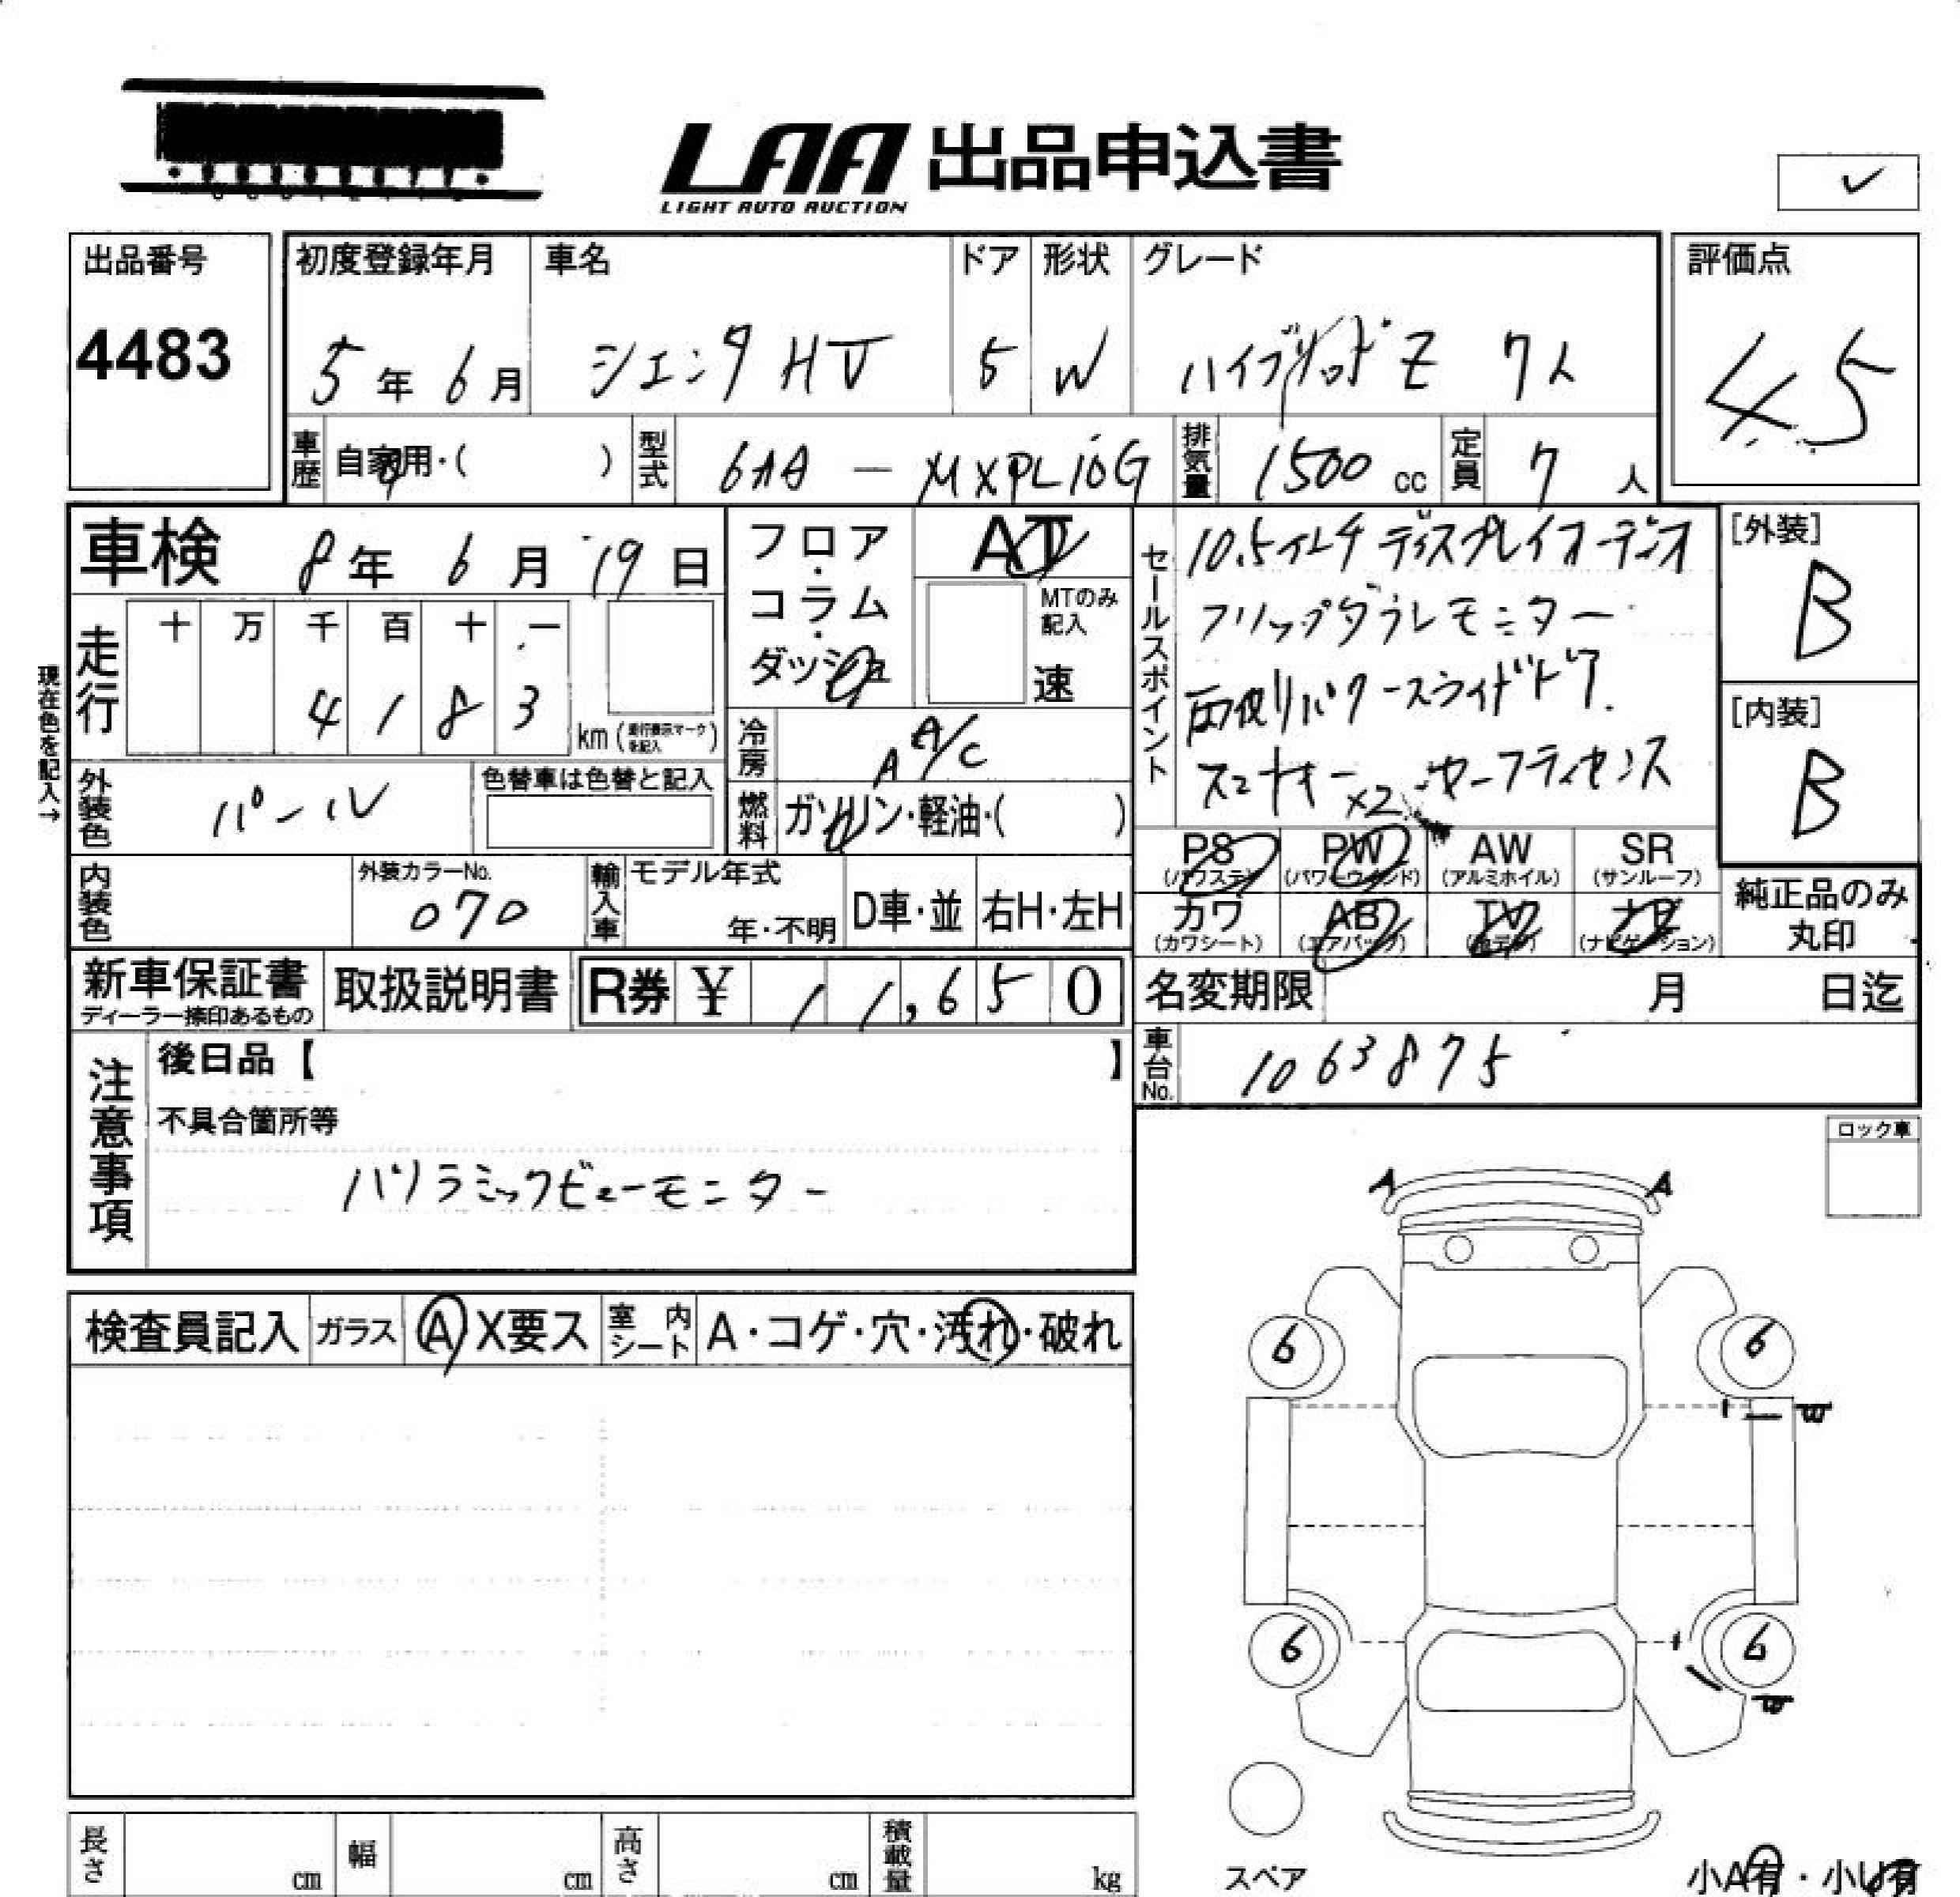 LAA 出品申込書
LIGHT AUTO AUCTION
✓
出品番号 初度登録年月 車名 ドア 形状 グレード 評価点
4483 5年6月 シエンタ HV 5 W ハイブリッド Z 7人 4.5
車歴 自家用・( ) 型式 6AA - MXPL10G 排気量 1500 cc 定員 7 人
車検 8年6月19日
フロア・コラム・ダッシュ AT
MTのみ記入 速
セールスポイント
10.5インチ ディスプレイオーディオ
フリップダウンモニター
両側パワースライドドア
スマートキー×2 セーフティセンス
[外装] B
[内装] B
現在色を記入→
走行 十 万 千 百 十 一
4 1 8 3 km (走行表示マークを記入)
冷房 A A/C
外装色 パール 色替車は色替と記入
燃料 ガソリン・軽油・( )
PS (パワステ) PW (パワーウインド) AW (アルミホイル) SR (サンルーフ)
カワ (カワシート) AB (エアバッグ) TV (地デジ) ナビ (ナビゲーション)
純正品のみ丸印
内装色 外装カラーNo. 070 輸入車 モデル年式 年・不明 D車・並 右H・左H
新車保証書 取扱説明書 R券 ¥ 11,650
ディーラー捺印あるもの
名変期限 月 日迄
車台No. 1063875
注意事項 後日品【 】
不具合箇所等
パノラミックビューモニター
ロック車
A A
検査員記入 ガラス A X要ス 室内シート A・コゲ・穴・汚れ・破れ
6 6
W
6 6
W
スペア
長さ cm 幅 cm 高さ cm 積載量 kg
小A有・小U有